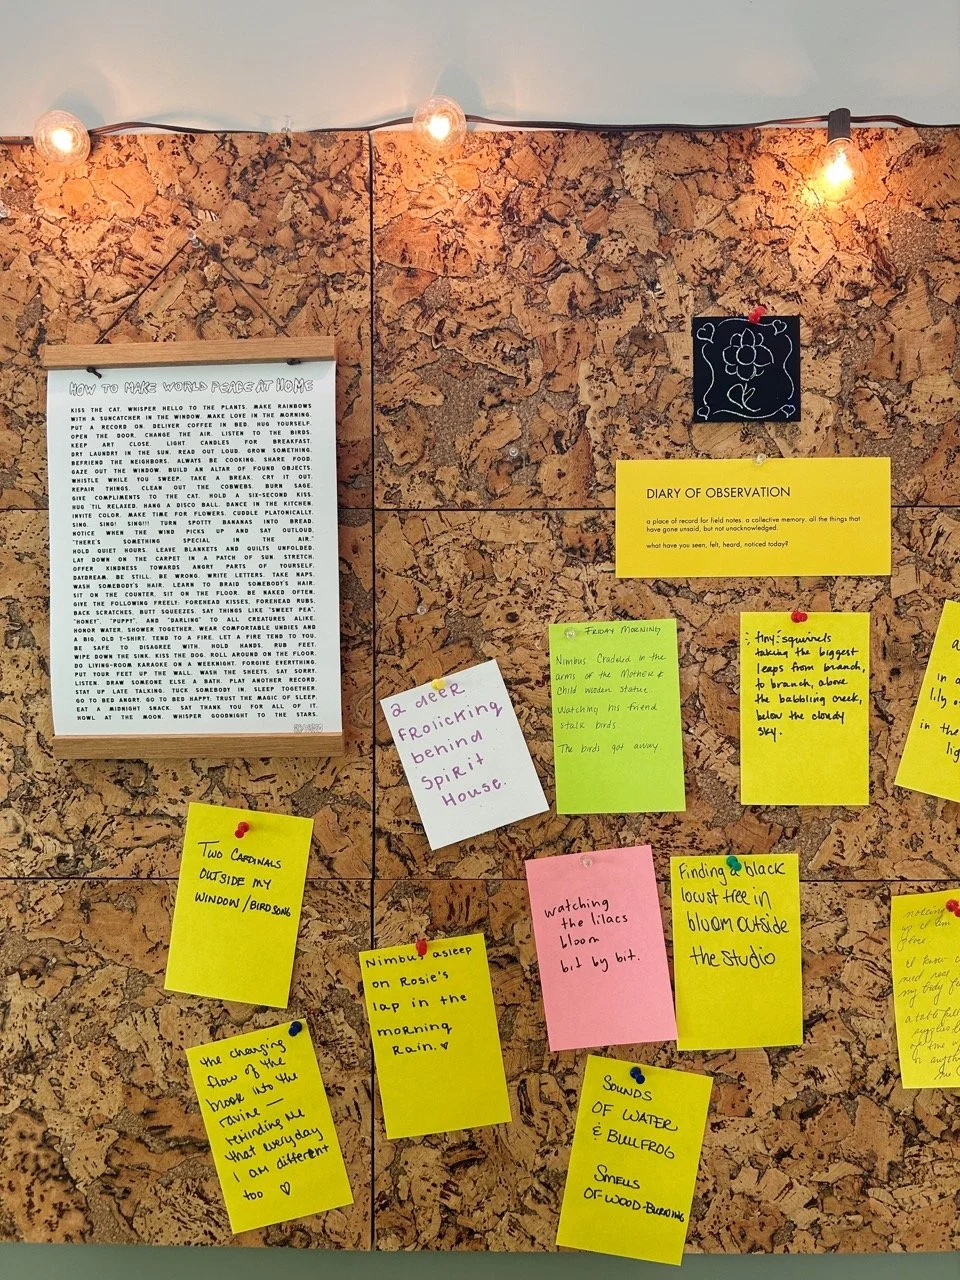 HOW TO MAKE WORLD PEACE AT HOME
KISS THE CAT. WHISPER HELLO TO THE PLANTS. MAKE RAINBOWS
WITH A SUNCATCHER IN THE WINDOW. MAKE LOVE IN THE MORNING.
PUT A RECORD ON. DELIVER COFFEE IN BED. HUG YOURSELF.
OPEN THE DOOR. CHANGE THE AIR. LISTEN TO THE BIRDS.
KEEP ART CLOSE. LIGHT CANDLES FOR BREAKFAST.
DRY LAUNDRY IN THE SUN. READ OUT LOUD. GROW SOMETHING.
BEFRIEND THE NEIGHBORS. ALWAYS BE COOKING. SHARE FOOD.
GAZE OUT THE WINDOW. BUILD AN ALTAR OF FOUND OBJECTS.
WHISTLE WHILE YOU SWEEP. TAKE A BREAK. CRY IT OUT.
REPAIR THINGS. CLEAN OUT THE COBWEBS. BURN SAGE.
GIVE COMPLIMENTS TO THE CAT. HOLD A SIX-SECOND KISS.
HUG 'TIL RELAXED. HANG A DISCO BALL. DANCE IN THE KITCHEN.
INVITE COLOR. MAKE TIME FOR FLOWERS. CUDDLE PLATONICALLY.
SING. SING! SING!!! TURN SPOTTY BANANAS INTO BREAD.
NOTICE WHEN THE WIND PICKS UP AND SAY OUTLOUD,
"THERE'S SOMETHING SPECIAL IN THE AIR."
HOLD QUIET HOURS. LEAVE BLANKETS AND QUILTS UNFOLDED.
LAY DOWN ON THE CARPET IN A PATCH OF SUN. STRETCH.
OFFER KINDNESS TOWARDS ANGRY PARTS OF YOURSELF.
DAYDREAM. BE STILL. BE WRONG. WRITE LETTERS. TAKE NAPS.
WASH SOMEBODY'S HAIR. LEARN TO BRAID SOMEBODY'S HAIR.
SIT ON THE COUNTER. SIT ON THE FLOOR. BE NAKED OFTEN.
GIVE THE FOLLOWING FREELY: FOREHEAD KISSES, FOREHEAD RUBS,
BACK SCRATCHES, BUTT SQUEEZES. SAY THINGS LIKE "SWEET PEA",
"HONEY", "PUPPY", AND "DARLING" TO ALL CREATURES ALIKE.
HONOR WATER. SHOWER TOGETHER. WEAR COMFORTABLE UNDIES AND
A BIG, OLD T-SHIRT. TEND TO A FIRE. LET A FIRE TEND TO YOU.
BE SAFE TO DISAGREE WITH. HOLD HANDS. RUB FEET.
WIPE DOWN THE SINK. KISS THE DOG. ROLL AROUND ON THE FLOOR.
DO LIVING-ROOM KARAOKE ON A WEEKNIGHT. FORGIVE EVERYTHING.
PUT YOUR FEET UP THE WALL. WASH THE SHEETS. SAY SORRY.
LISTEN. DRAW SOMEONE ELSE A BATH. PLAY ANOTHER RECORD.
STAY UP LATE TALKING. TUCK SOMEBODY IN. SLEEP TOGETHER.
GO TO BED ANGRY. GO TO BED HAPPY. TRUST THE MAGIC OF SLEEP.
EAT A MIDNIGHT SNACK. SAY THANK YOU FOR ALL OF IT.
HOWL AT THE MOON. WHISPER GOODNIGHT TO THE STARS.
DIARY OF OBSERVATION
a place of record for field notes. a collective memory. all the things that
have gone unsaid, but not unacknowledged.
what have you seen, felt, heard, noticed today?
a deer
frolicking
behind
Spirit
House.
FRIDAY MORNING
Nimbus. Cradled in the
arms of the Mother &
Child wooden statue.
Watching his friend
stalk birds
The birds got away.
tiny squirrels
taking the biggest
leaps from branch,
to branch, above
the babbling creek,
below the cloudy
sky.
in a
lily
in the
lig
TWO CARDINALS
OUTSIDE MY
WINDOW/BIRDSONG
Nimbus asleep
on Rosie's
lap in the
morning
Rain. ♥
watching
the lilacs
bloom
bit by bit.
Finding a black
locust tree in
bloom outside
the studio
the changing
flow of the
brook into the
ravine —
reminding me
that everyday
I am different
too ♡
SOUNDS
OF WATER
& BULLFROG
SMELLS
OF WOOD-BURNING
I know
my body